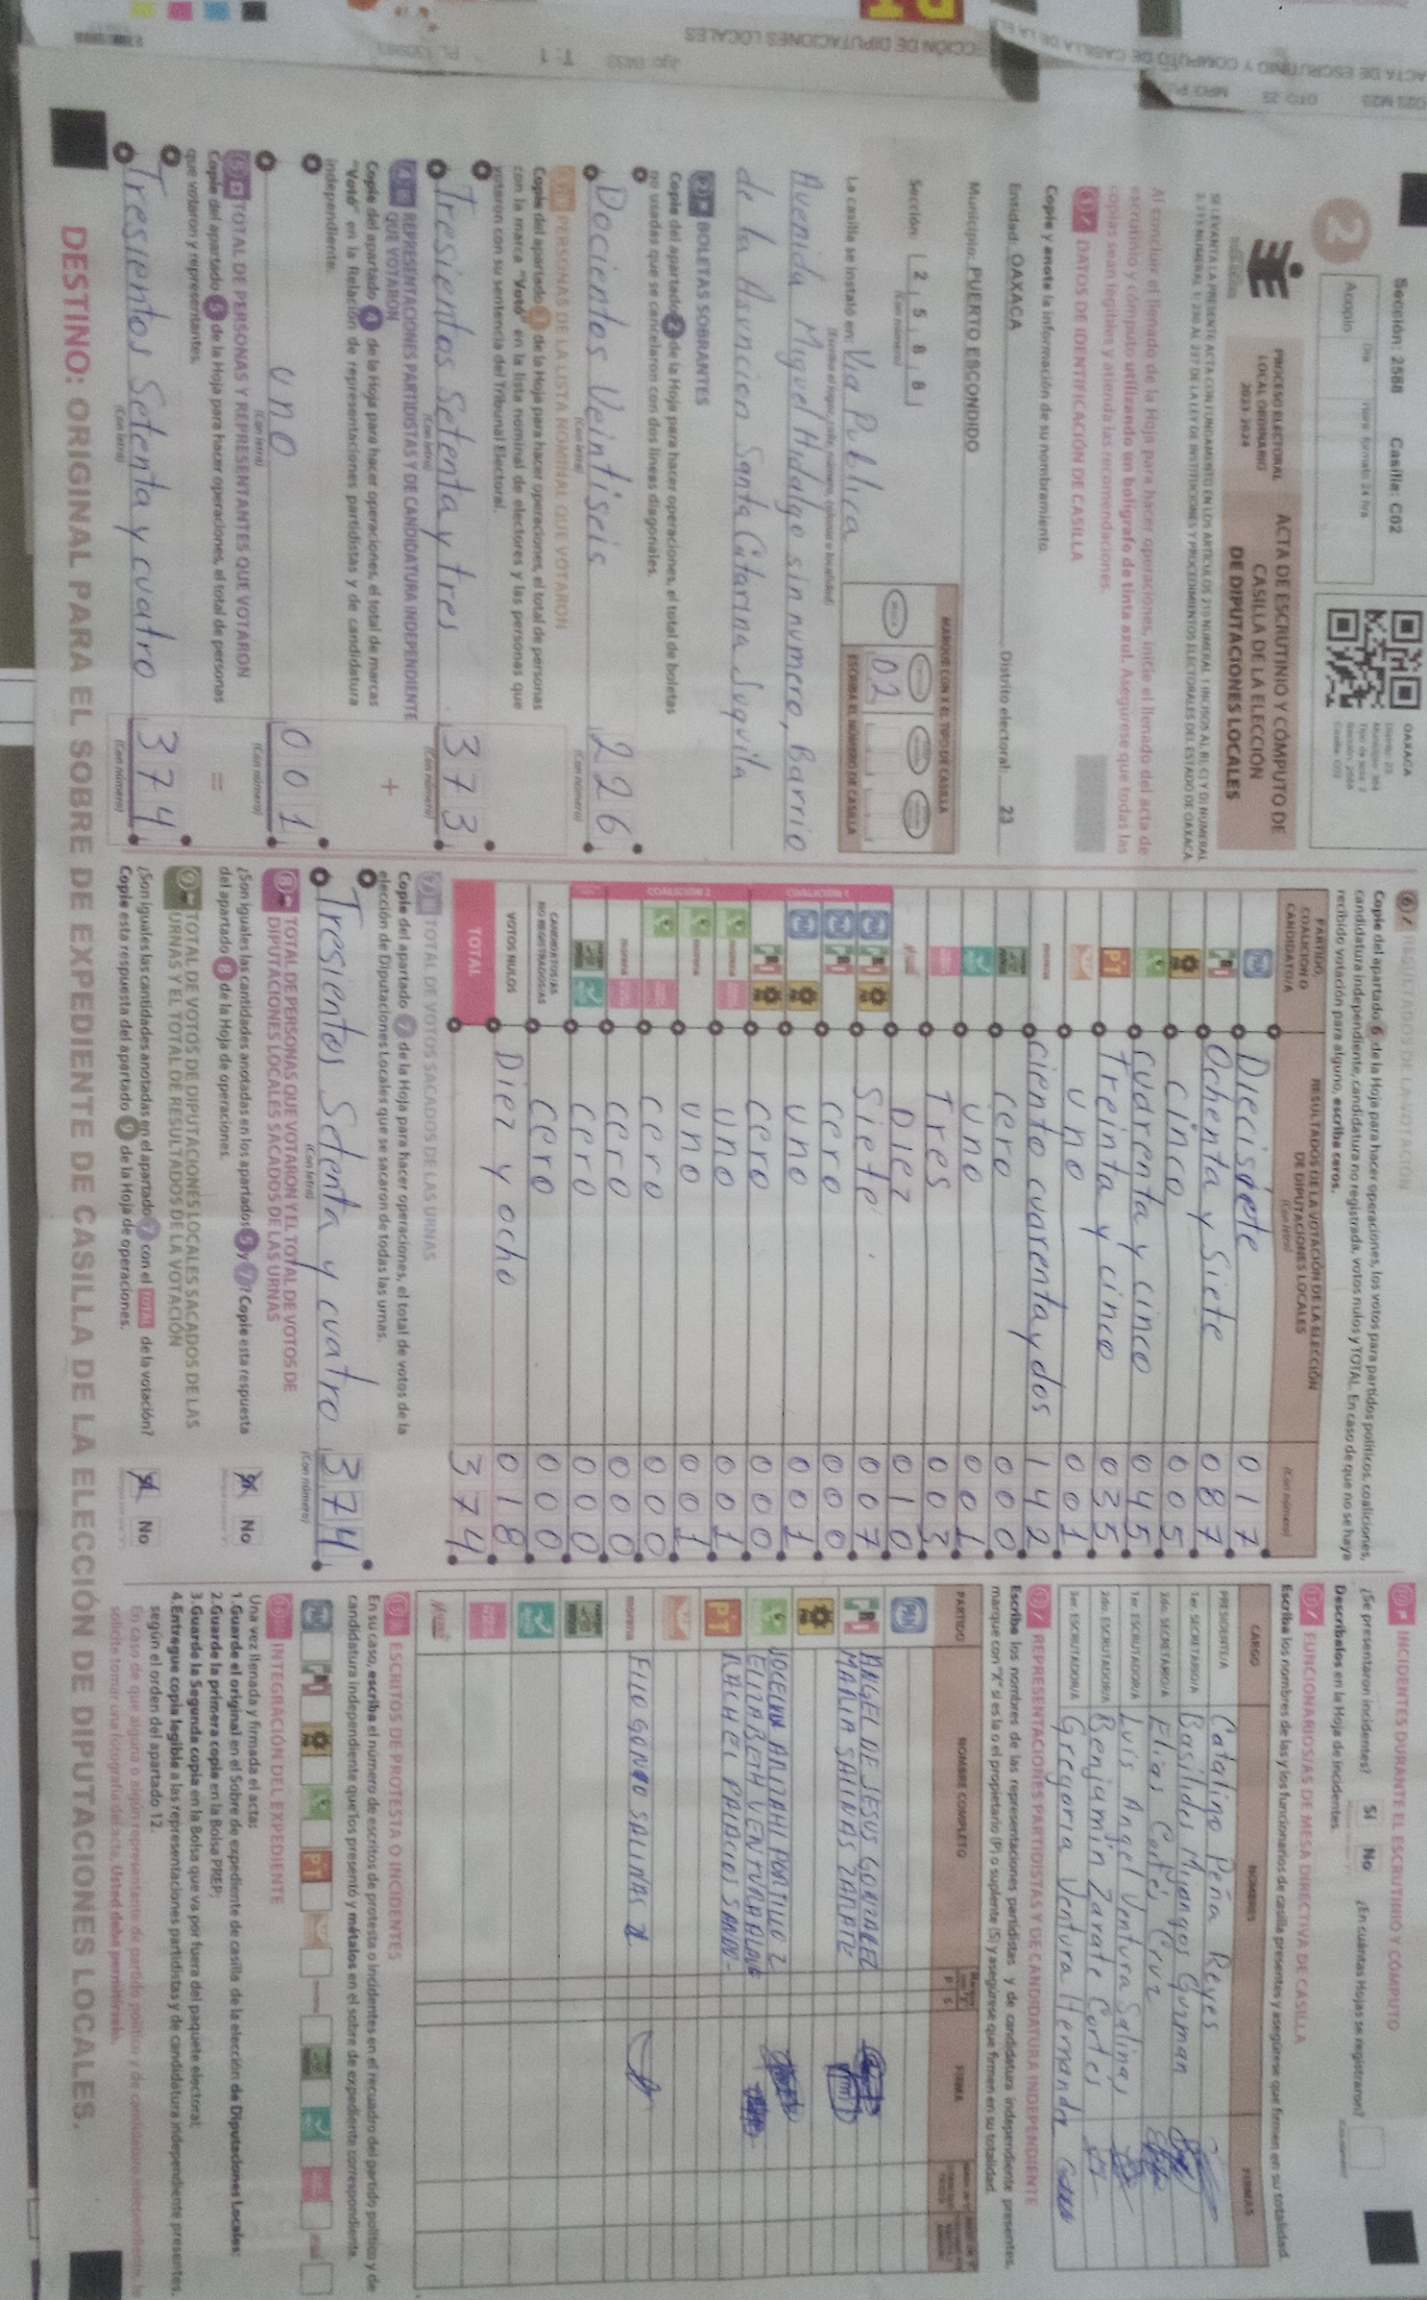 Sección: 2588 Casilla: C02
OAXACA
2
Acopio
PROCESO ELECTORAL
LOCAL ORDINARIO
2023-2024
ACTA DE ESCRUTINIO Y CÓMPUTO DE
CASILLA DE LA ELECCIÓN
DE DIPUTACIONES LOCALES
Al concluir el llenado de la Hoja para hacer operaciones, inicie el llenado del acta de
escrutinio y cómputo utilizando un bolígrafo de tinta azul. Asegúrese que todas las
copias sean legibles y atienda las recomendaciones.
1 DATOS DE IDENTIFICACIÓN DE CASILLA
Copie y anote la información de su nombramiento.
Entidad: OAXACA Distrito electoral: 23
Municipio: PUERTO ESCONDIDO
Sección: 2 5 8 8
(Con número)
MARQUE CON X EL TIPO DE CASILLA
02
ESCRIBA EL NÚMERO DE CASILLA
La casilla se instaló en: Via Publica
Avenida Miguel Hidalgo sin numero, Barrio
de la Asuncion Santa Catarina Juquila
2 BOLETAS SOBRANTES
Copie del apartado 2 de la Hoja para hacer operaciones, el total de boletas
no usadas que se cancelaron con dos líneas diagonales.
Docientos Veintiseis 226
(Con letra) (Con número)
3 PERSONAS DE LA LISTA NOMINAL QUE VOTARON
Copie del apartado 3 de la Hoja para hacer operaciones, el total de personas
con la marca "Votó" en la lista nominal de electores y las personas que
votaron con su sentencia del Tribunal Electoral.
Tresientos Setenta y tres 373
(Con letra) (Con número)
4 REPRESENTACIONES PARTIDISTAS Y DE CANDIDATURA INDEPENDIENTE
QUE VOTARON
+
Copie del apartado 4 de la Hoja para hacer operaciones, el total de marcas
"Votó" en la Relación de representaciones partidistas y de candidatura
independiente.
uno 001
(Con letra) (Con número)
5 TOTAL DE PERSONAS Y REPRESENTANTES QUE VOTARON
Copie del apartado 5 de la Hoja para hacer operaciones, el total de personas
que votaron y representantes.
=
Tresientos Setenta y cuatro 374
(Con letra) (Con número)
6 RESULTADOS DE LA VOTACIÓN
Copie del apartado 6 de la Hoja para hacer operaciones, los votos para partidos políticos, coaliciones,
candidatura independiente, candidatura no registrada, votos nulos y TOTAL. En caso de que no se haya
recibido votación para alguno, escriba ceros.
PARTIDO,
COALICIÓN O
CANDIDATO/A
RESULTADOS DE LA VOTACIÓN DE LA ELECCIÓN
DE DIPUTACIONES LOCALES
(Con letra)
(Con número)
PAN Diecisiete 017
PRI Ochenta y Siete 087
PRD cinco 005
cuarenta y cinco 045
PT Treinta y cinco 035
uno 001
morena ciento cuarenta y dos 142
cero 000
uno 001
Tres 003
Diez 010
COALICIÓN 1
Siete 007
cero 000
uno 001
cero 000
COALICIÓN 2
uno 001
uno 001
cero 000
cero 000
cero 000
CANDIDATOS/AS
NO REGISTRADOS/AS cero 000
VOTOS NULOS Diez y ocho 018
TOTAL 374
7 TOTAL DE VOTOS SACADOS DE LAS URNAS
Copie del apartado 7 de la Hoja para hacer operaciones, el total de votos de la
elección de Diputaciones Locales que se sacaron de todas las urnas.
Tresientos Setenta y cuatro 374
(Con letra) (Con número)
8 TOTAL DE PERSONAS QUE VOTARON Y EL TOTAL DE VOTOS DE
DIPUTACIONES LOCALES SACADOS DE LAS URNAS
¿Son iguales las cantidades anotadas en los apartados 5 y 7? Copie esta respuesta
del apartado 8 de la Hoja de operaciones.
Sí No
9 TOTAL DE VOTOS DE DIPUTACIONES LOCALES SACADOS DE LAS
URNAS Y EL TOTAL DE RESULTADOS DE LA VOTACIÓN
¿Son iguales las cantidades anotadas en el apartado 7 con el TOTAL de la votación?
Copie esta respuesta del apartado 9 de la Hoja de operaciones.
Sí No
10 INCIDENTES DURANTE EL ESCRUTINIO Y CÓMPUTO
¿Se presentaron incidentes? Sí No ¿En cuántas Hojas se registraron?
Descríbalos en la Hoja de incidentes.
11 FUNCIONARIOS/AS DE MESA DIRECTIVA DE CASILLA
Escriba los nombres de las y los funcionarios de casilla presentes y asegúrese que firmen en su totalidad.
CARGO NOMBRES FIRMAS
PRESIDENTE/A Catalino Peña Reyes
1er. SECRETARIO/A Basilides Mijangos Guzman
2do. SECRETARIO/A Elias Cortés Cruz
1er. ESCRUTADOR/A Luis Angel Ventura Salinas
2do. ESCRUTADOR/A Benjamin Zarate Cortes
3er. ESCRUTADOR/A Gregoria Ventura Hernandez
12 REPRESENTACIONES PARTIDISTAS Y DE CANDIDATURA INDEPENDIENTE
Escriba los nombres de las representaciones partidistas y de candidatura independiente presentes,
marque con "X" si es la o el propietario (P) o suplente (S) y asegúrese que firmen en su totalidad.
PARTIDO NOMBRE COMPLETO FIRMA
PAN
PRI ANGEL DE JESUS GONZALEZ
MARIA SALINAS ZARATE
ELIZABETH VENTURA
PT RACHEL PALACIOS
morena SALINAS
13 ESCRITOS DE PROTESTA O INCIDENTES
En su caso, escriba el número de escritos de protesta o incidentes en el recuadro del partido político y de
candidatura independiente que los presentó y métalos en el sobre de expediente correspondiente.
14 INTEGRACIÓN DEL EXPEDIENTE
Una vez llenada y firmada el acta:
1. Guarde el original en el Sobre de expediente de casilla de la elección de Diputaciones Locales;
2. Guarde la primera copia en la Bolsa PREP;
3. Guarde la Segunda copia en la Bolsa que va por fuera del paquete electoral;
4. Entregue copia legible a las representaciones partidistas y de candidatura independiente presentes,
según el orden del apartado 12.
DESTINO: ORIGINAL PARA EL SOBRE DE EXPEDIENTE DE CASILLA DE LA ELECCIÓN DE DIPUTACIONES LOCALES.